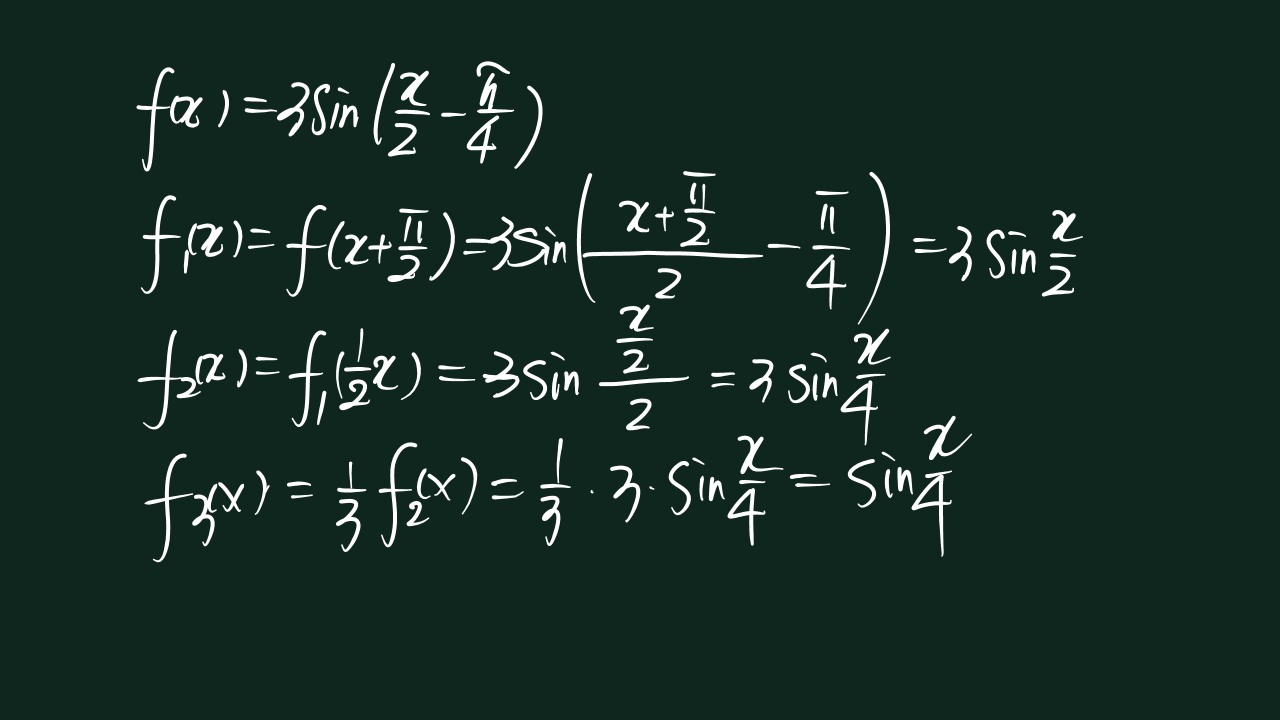 f(x) = 3sin(x/2 - π/4)
f₁(x) = f(x + π/2) = 3sin((x + π/2)/2 - π/4) = 3 sin x/2
f₂(x) = f₁(1/2 x) = 3 sin (x/2)/2 = 3 sin x/4
f₃(x) = 1/3 f₂(x) = 1/3 · 3 · sin x/4 = sin x/4